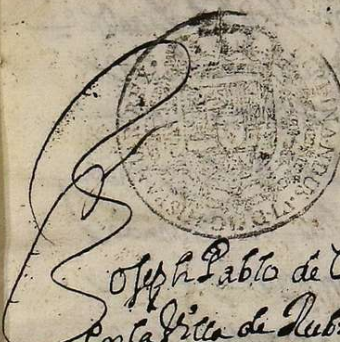 FERNANDUS·VI·D·G·HISPANIAR·REX·
Joseph Pablo de
en la Villa de Rub